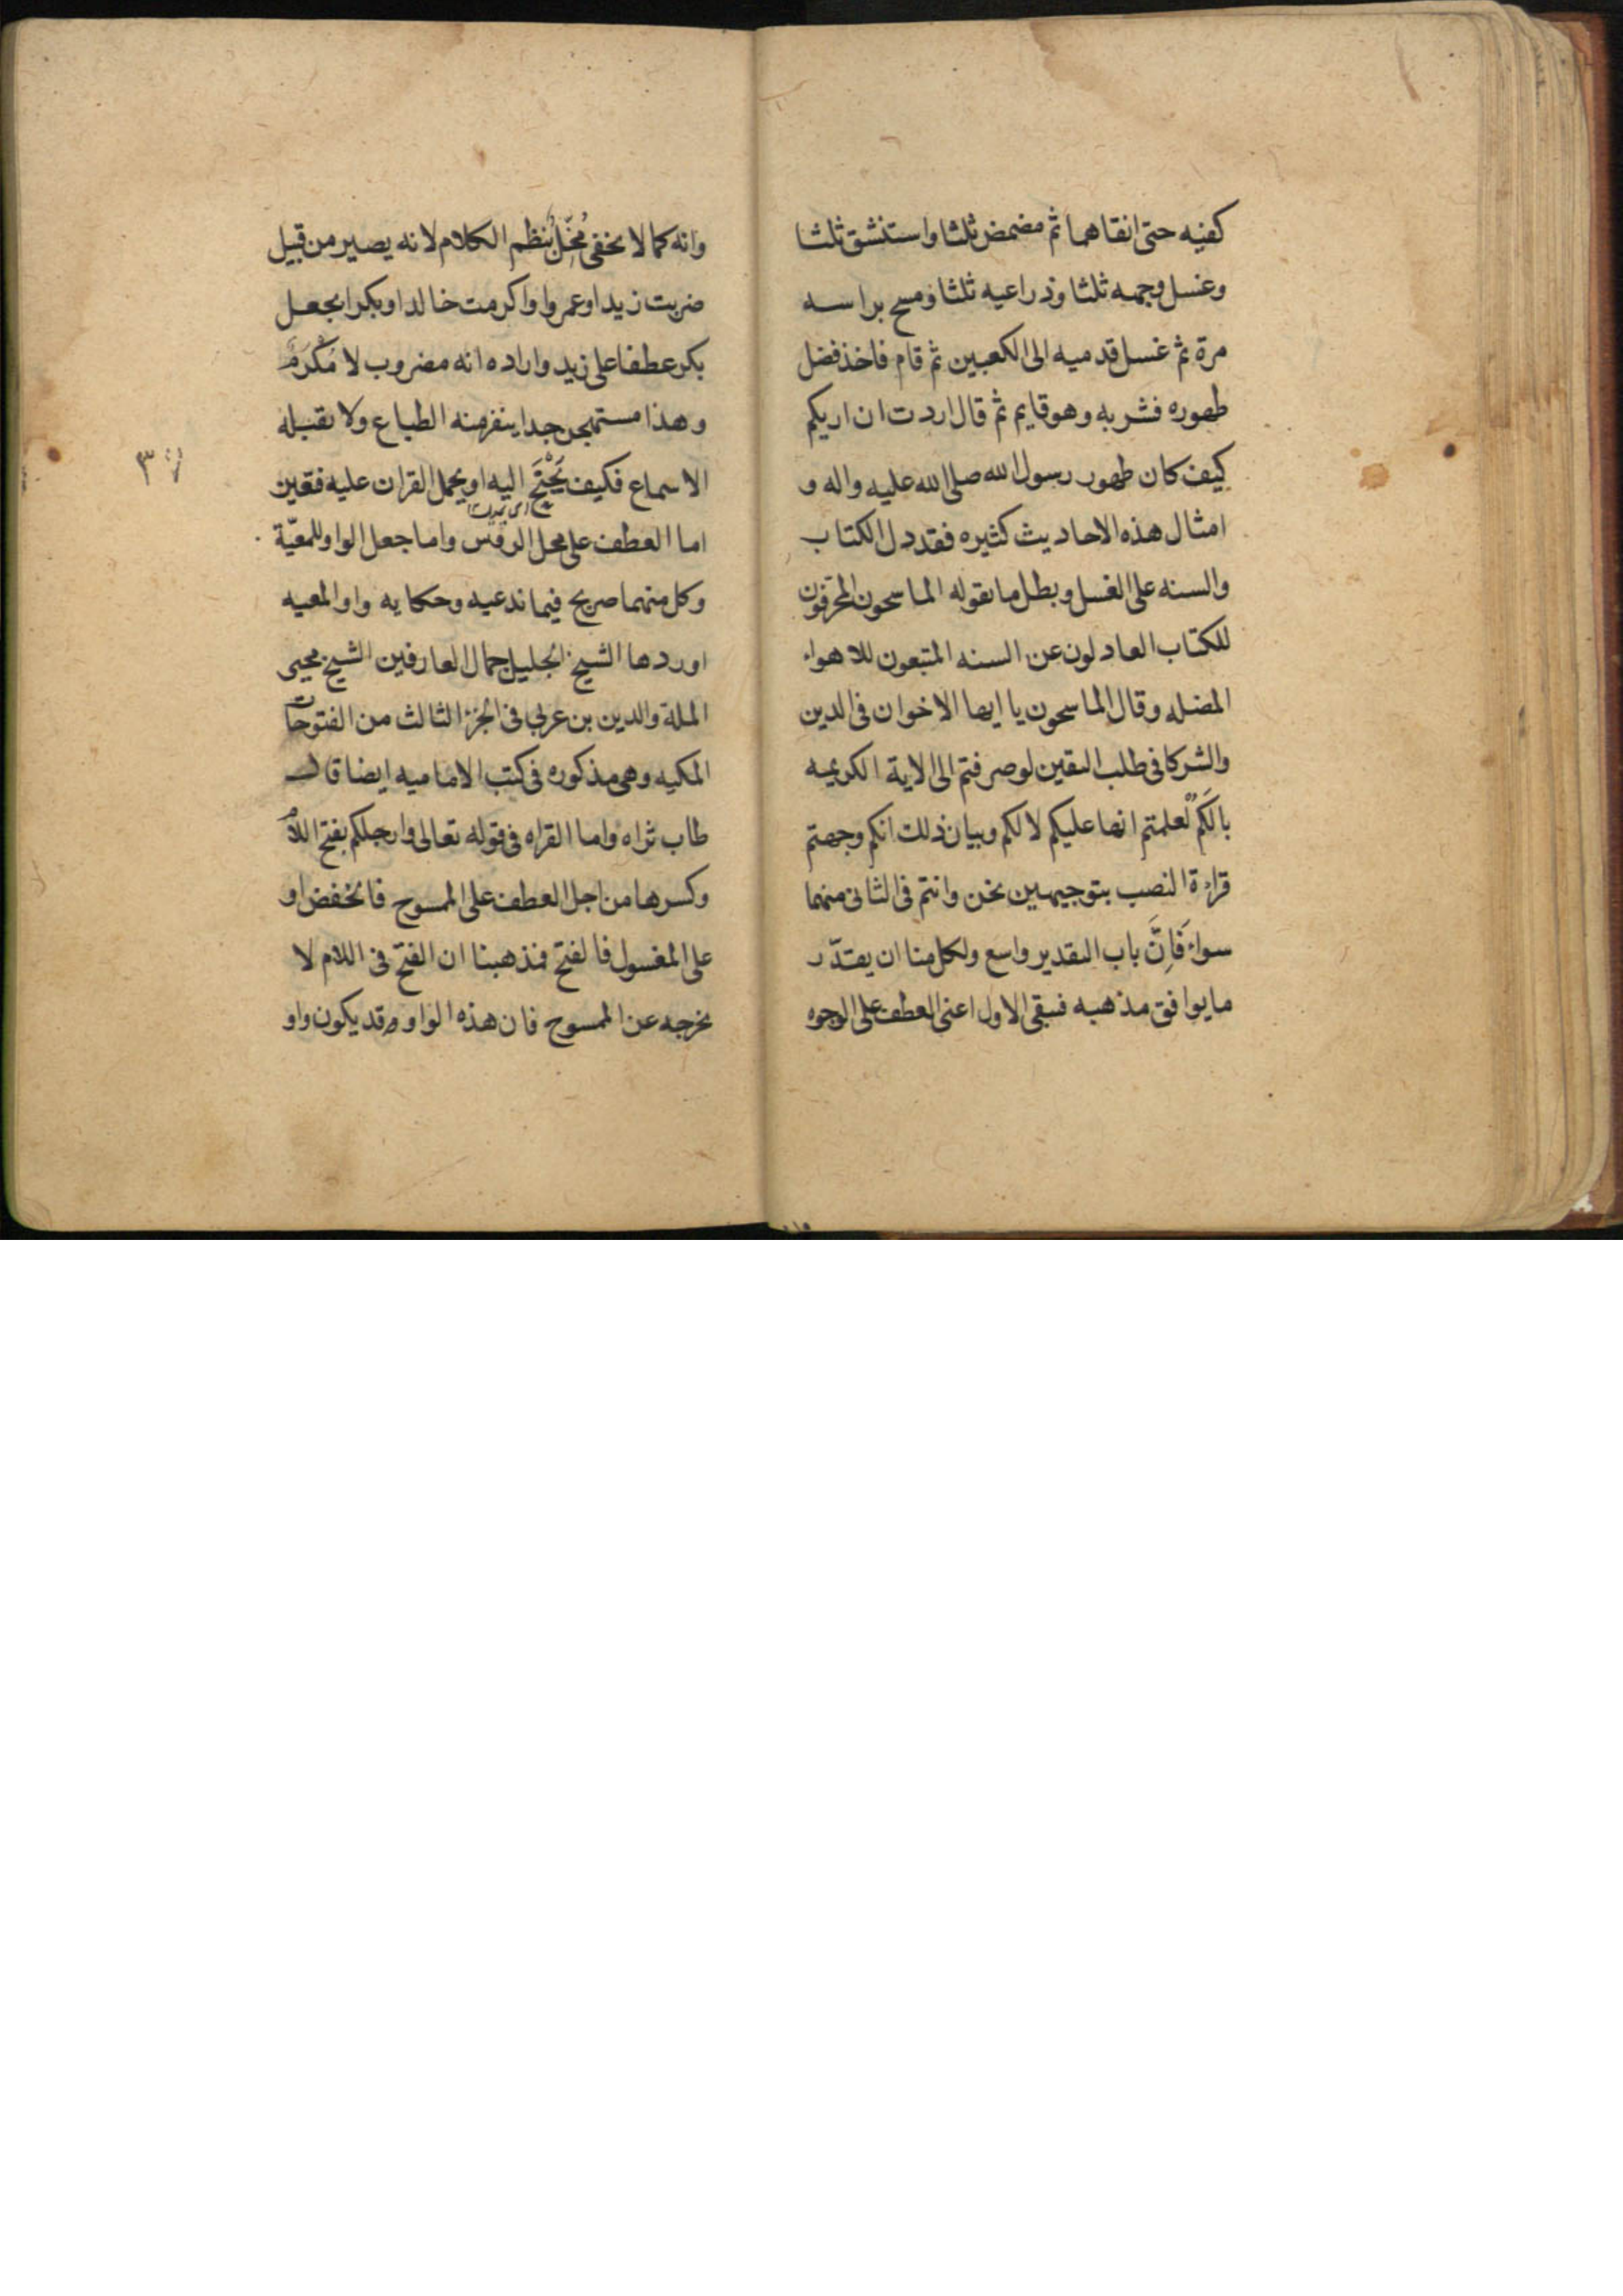 كفيه حتى انقاهما ثم مضمض ثلثا واستنشق ثلثا
وغسل وجهه ثلثا وذراعيه ثلثا ومسح براسه
مرة ثم غسل قدميه الى الكعبين ثم قام فاخذ فضل
طهوره فشربه وهو قايم ثم قال اردت ان اريكم
كيف كان طهور رسول الله صلى الله عليه واله و
امثال هذه الاحاديث كثيره فقد دل الكتاب
والسنه على الغسل وبطل ما يقوله الماسحون المحرفون
للكتاب العادلون عن السنه المتبعون للاهواء
المضله وقال الماسحون يا ايها الاخوان فى الدين
والشركا فى طلب اليقين لو صرفتم الى الاية الكريمه
بالكم لعلمتم انها عليكم لا لكم وبيان ذلك انكم وجهتم
قراءة النصب بتوجيهين نحن وانتم فى الثانى منهما
سواء فَاِنَّ باب التقدير واسع ولكل منا ان يقدّر
ما يوافق مذهبه فبقى الاول اعنى العطف على الوجوه
وانه كما لا يخفى مُخِّلٌ بنظم الكلام لانه يصير من قبيل
ضربت زيدا وعمروا واكرمت خالدا وبكرا بجعل
بكر عطفا على زيد واراده انه مضروب لا مُكْرَم
وهذا مستهجن جدا ينفر منه الطباع ولا تقبله
الاسماع فكيف يَجْنَح اليه او يحمل القران عليه فتعين
اما العطف على محل الروس واما جعل الواو للمعيّة
وكل منهما صريح فيما ندعيه وحكايه واو المعيه
اوردها الشيخ الجليل جمال العارفين الشيخ محيى
الملة والدين بن عربى فى الجزء الثالث من الفتوحات
المكيه وهى مذكوره فى كتب الاماميه ايضا قال
طاب ثراه واما القراه فى قوله تعالى وارجلكم بفتح اللام
وكسرها من اجل العطف على الممسوح فالخفض او
على المغسول فالفتح فمذهبنا ان الفتح فى اللام لا
يخرجه عن الممسوح فان هذه الواو قد يكون واو